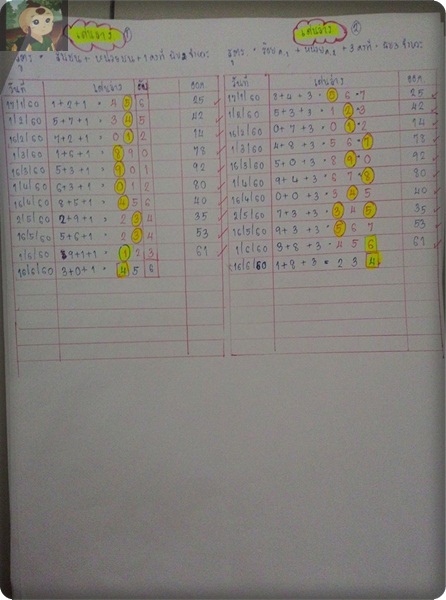 เด่นล่าง ①
เด่นล่าง ②
สูตร =
สูตร =
วันที่ เด่นล่าง ออก
17/1/60 1+2+1 = 4 5 6 25 ✓
1/2/60 5+7+1 = 3 4 5 42 ✓
16/2/60 7+2+1 = 0 1 2 14 ✓
1/3/60 1+6+1 = 8 9 0 78 ✓
16/3/60 5+3+1 = 9 0 1 92 ✓
1/4/60 6+3+1 = 0 1 2 80 ✓
16/4/60 8+5+1 = 4 5 6 40 ✓
2/5/60 2+9+1 = 2 3 4 35 ✓
16/5/60 5+6+1 = 2 3 4 53 ✓
1/6/60 9+1+1 = 1 2 3 61 ✓
16/6/60 3+0+1 = 4 5 6
วันที่ เด่นล่าง ออก
17/1/60 8+4+3 = 5 6 7 25 ✓
1/2/60 5+3+3 = 1 2 3 42 ✓
16/2/60 0+7+3 = 0 1 2 14 ✓
1/3/60 4+8+3 = 5 6 7 78 ✓
16/3/60 5+0+3 = 8 9 0 92 ✓
1/4/60 9+4+3 = 6 7 8 80 ✓
16/4/60 0+0+3 = 3 4 5 40 ✓
2/5/60 7+3+3 = 3 4 5 35 ✓
16/5/60 9+3+3 = 5 6 7 53 ✓
1/6/60 3+8+3 = 4 5 6 61 ✓
16/6/60 1+8+3 = 2 3 4